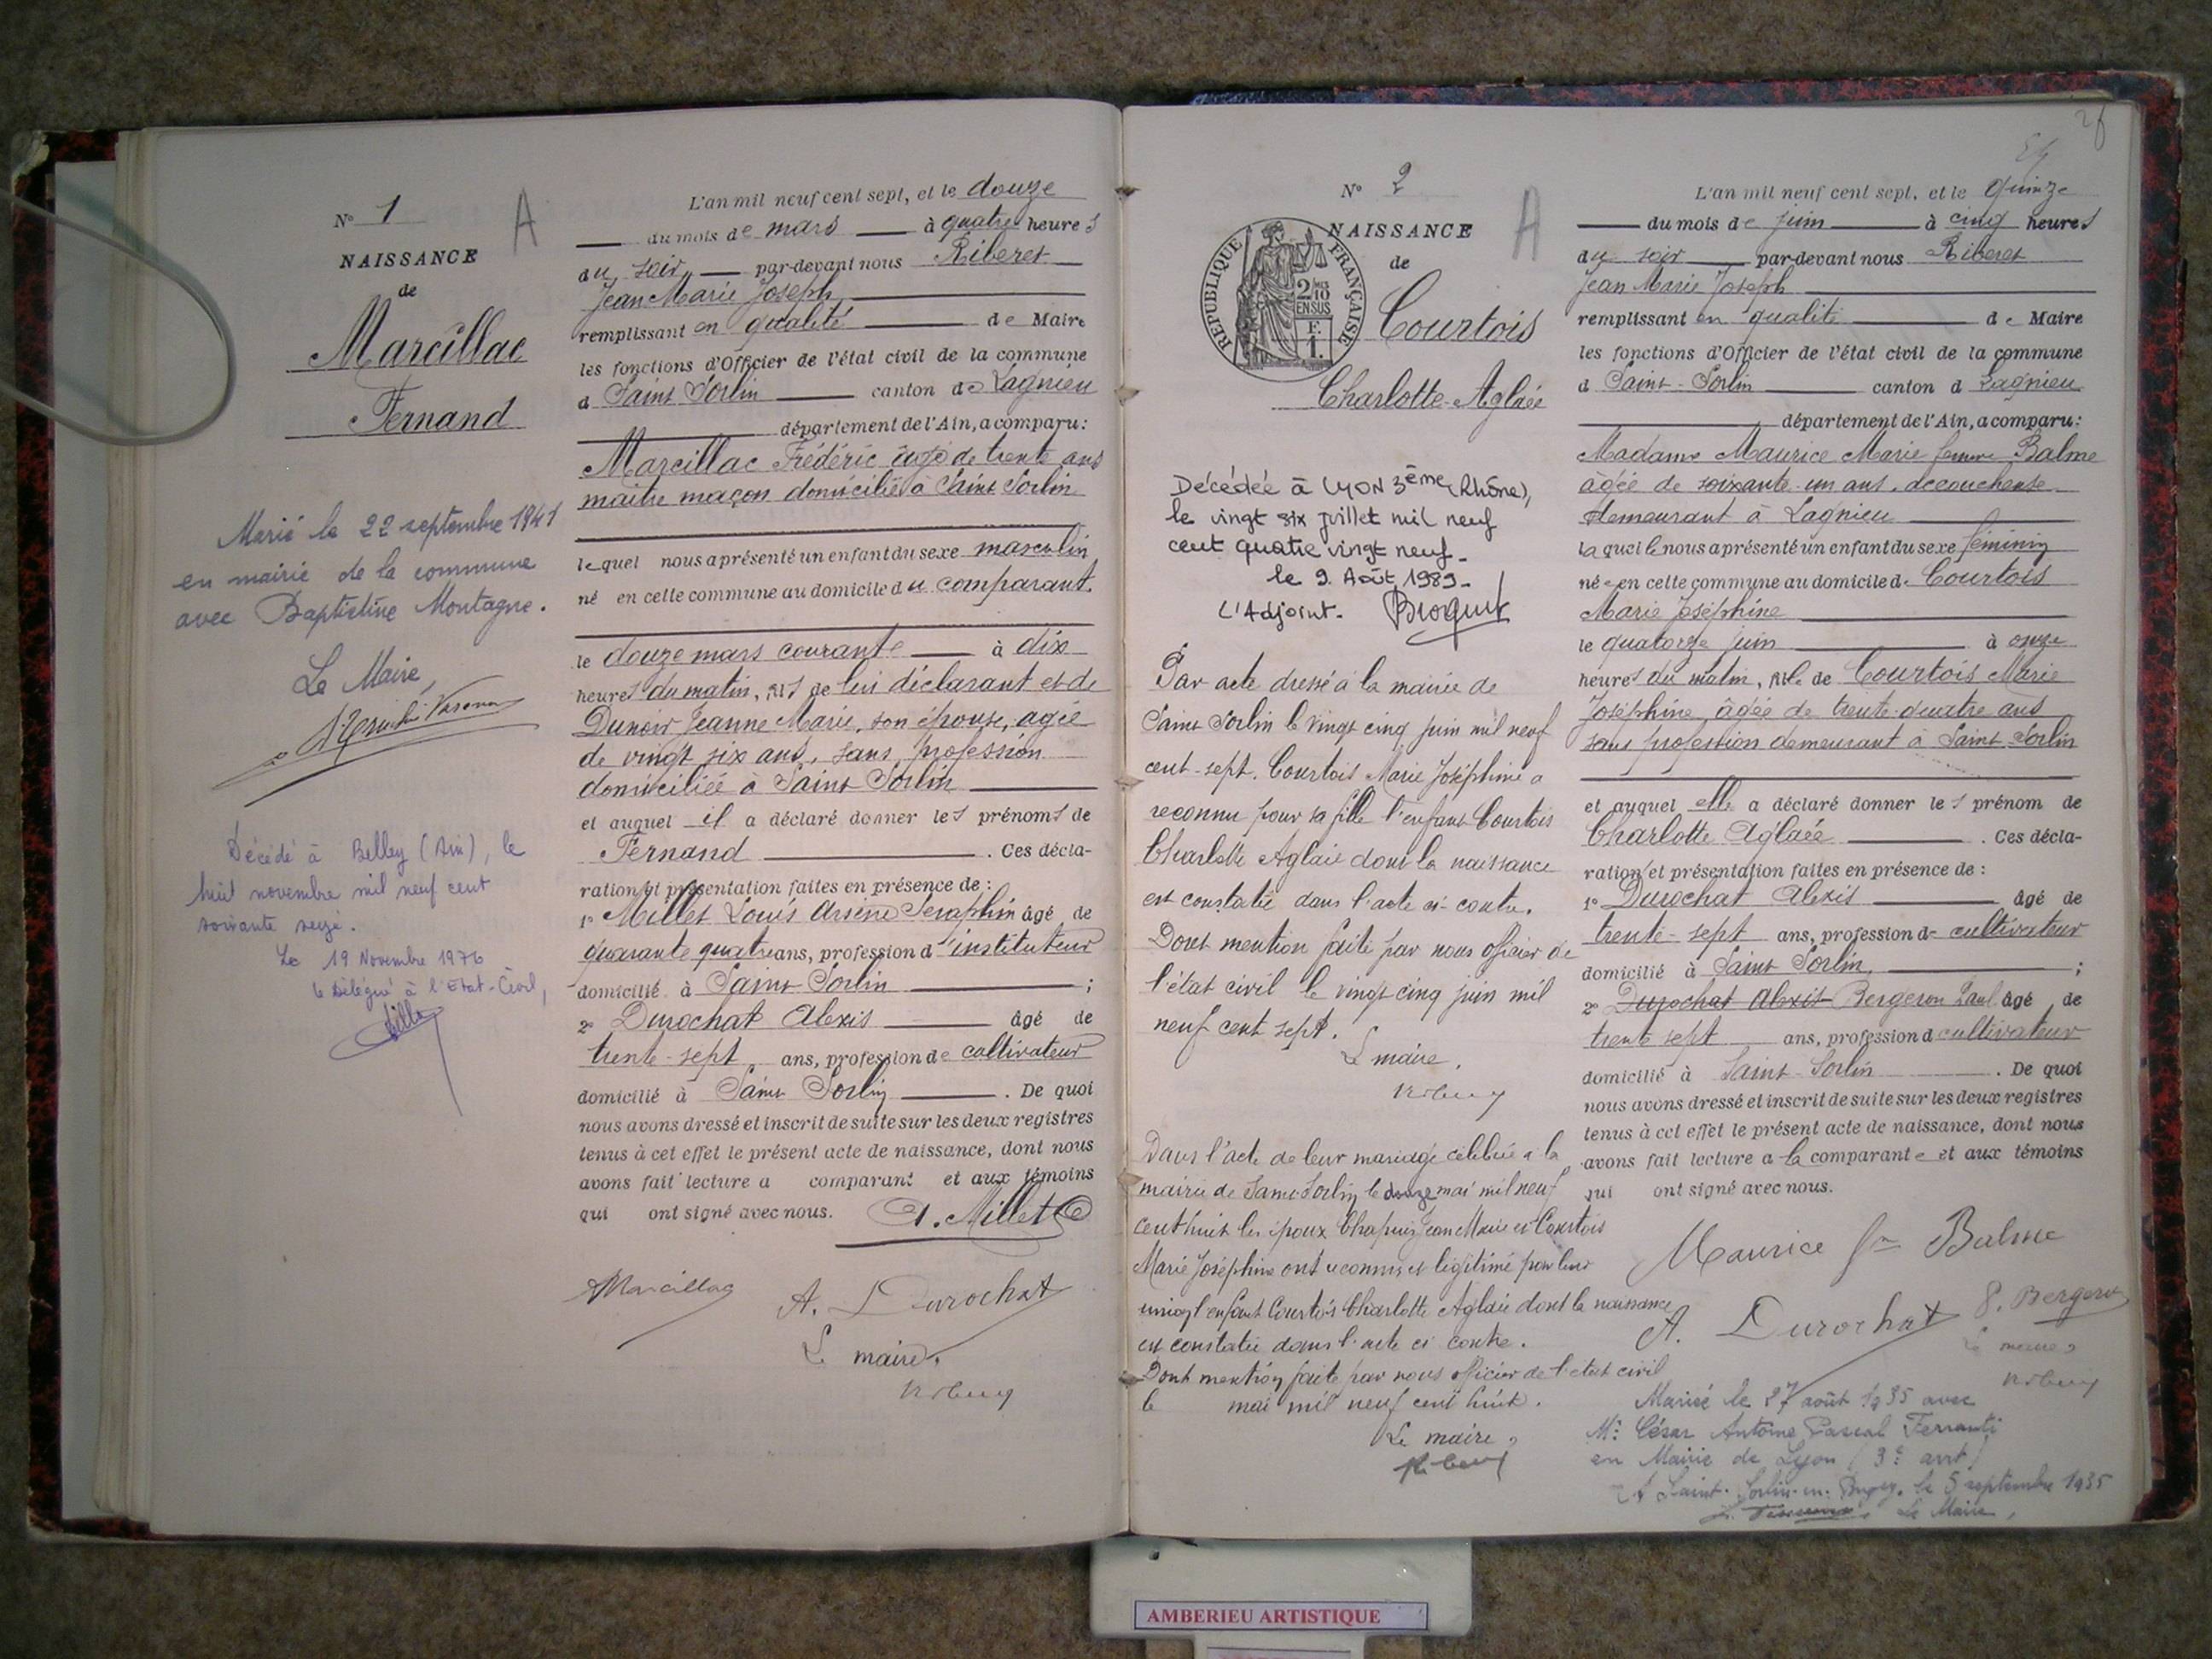 N° 1
NAISSANCE
de
Marcillac
Fernand
A
Marié le 22 septembre 1941
en mairie de la commune
avec Baptistine Montagne.
Le Maire,
Décédé à Belley (Ain), le
huit novembre mil neuf cent
soixante seize.
Le 19 Novembre 1976
le Délégué à l'Etat-Civil,
L'an mil neuf cent sept, et le douze
du mois de mars à quatre heures
du soir par-devant nous Riberet
Jean Marie Joseph
remplissant en qualité de Maire
les fonctions d'Officier de l'état civil de la commune
d Saint Sorlin canton de Lagnieu
département de l'Ain, a comparu:
Marcillac Frédéric âgé de trente ans
maître maçon domicilié à Saint Sorlin
lequel nous a présenté un enfant du sexe masculin
né en cette commune au domicile du comparant.
le douze mars courante à dix
heures du matin, fils de lui déclarant et de
Dunoir Jeanne Marie, son épouse, agée
de vingt six ans, sans profession
domiciliée à Saint Sorlin
et auquel il a déclaré donner les prénoms de
Fernand . Ces décla-
ration et présentation faites en présence de :
1° Millet Louis Arsène Seraphin âgé de
quarante quatre ans, profession d'instituteur
domicilié à Saint Sorlin ;
2° Durochat Alexis âgé de
trente-sept ans, profession de cultivateur
domicilié à Saint Sorlin . De quoi
nous avons dressé et inscrit de suite sur les deux registres
tenus à cet effet le présent acte de naissance, dont nous
avons fait lecture a comparant et aux témoins
qui ont signé avec nous. A. Millet
Marcillac A. Durochat
Le maire.
N° 2
NAISSANCE
de
Courtois
Charlotte-Aglaée
A
RÉPUBLIQUE FRANÇAISE
2/10
EN SUS
F.
1.
Décédée à LYON 3ème (Rhône),
le vingt six juillet mil neuf
cent quatre vingt neuf-
le 9. Août 1989-
L'Adjoint.
Par acte dressé à la mairie de
Saint Sorlin le vingt cinq juin mil neuf
cent-sept. Courtois Marie Joséphine a
reconnu pour sa fille l'enfant Courtois
Charlotte Aglaée dont la naissance
est constatée dans l'acte ci-contre.
Dont mention faite par nous officier de
l'état civil le vingt cinq juin mil
neuf cent sept.
Le maire.
Dans l'acte de leur mariage célébré à la
mairie de Saint-Sorlin le douze mai mil neuf
cent huit les époux Chapuis Jean Marie et Courtois
Marie Joséphine ont reconnu et légitimé par leur
union l'enfant Courtois Charlotte Aglaée dont la naissance
est constatée dans l'acte ci contre.
Dont mention faite par nous officier de l'état civil
le mai mil neuf cent huit.
Le maire,
L'an mil neuf cent sept, et le quinze
du mois de juin à cinq heures
du soir par-devant nous Riberet
Jean Marie Joseph
remplissant en qualité de Maire
les fonctions d'Officier de l'état civil de la commune
d Saint-Sorlin canton d Lagnieu
département de l'Ain, a comparu:
Madame Maurice Marie femme Balme
âgée de soixante-un ans, accoucheuse
demeurant à Lagnieu
laquelle nous a présenté un enfant du sexe féminin
née en cette commune au domicile de Courtois
Marie Joséphine
le quatorze juin à onze
heures du matin, fille de Courtois Marie
Joséphine âgée de trente-quatre ans
sans profession demeurant à Saint-Sorlin
et auquel elle a déclaré donner les prénom de
Charlotte Aglaée . Ces décla-
ration et présentation faites en présence de :
1° Durochat Alexis âgé de
trente-sept ans, profession de cultivateur
domicilié à Saint Sorlin ;
2° Durochat Alexis Bergeron Paul âgé de
trente sept ans, profession d cultivateur
domicilié à Saint-Sorlin . De quoi
nous avons dressé et inscrit de suite sur les deux registres
tenus à cet effet le présent acte de naissance, dont nous
avons fait lecture a la comparante et aux témoins
qui ont signé avec nous.
Maurice fe Balme
A. Durochat P. Bergeron
Le maire,
Mariée le 27 août 1935 avec
Mr César Antoine Pascal Ferranti
en Mairie de Lyon (3e arrt)
A Saint-Sorlin-en-Bugey, le 5 septembre 1935
Le Maire,
AMBERIEU ARTISTIQUE